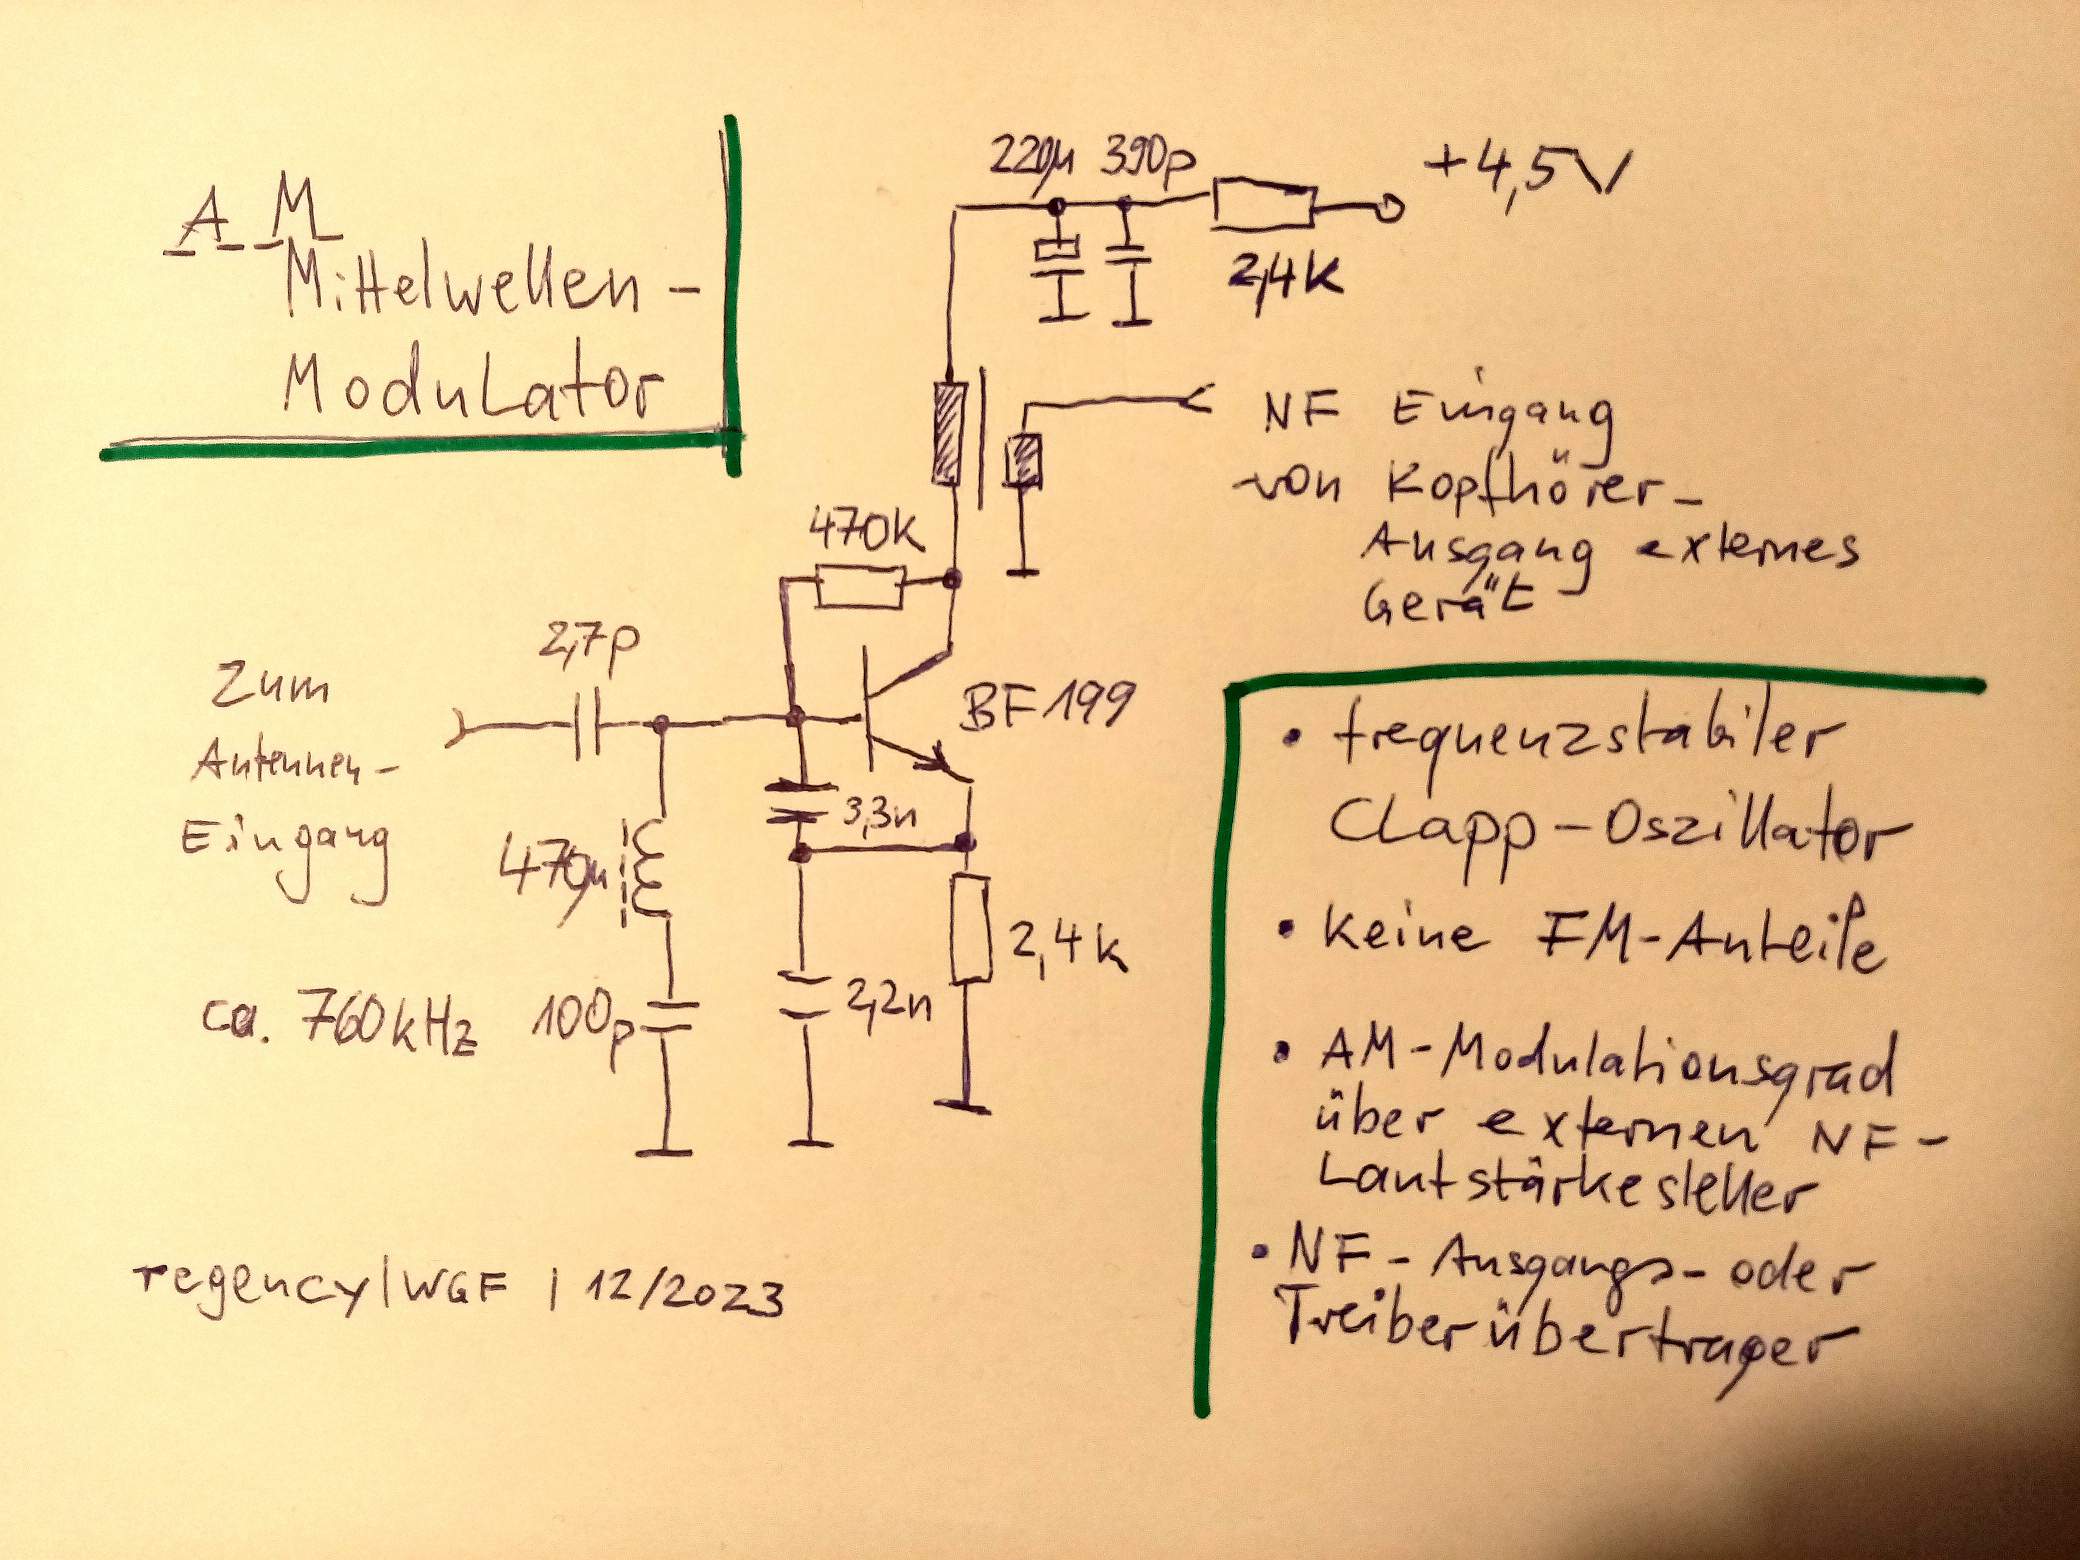 AM
Mittelwellen-
Modulator
220µ 390p
+4,5V
2,4k
NF Eingang
von Kopfhörer-
Ausgang externes
Gerät
470k
2,7p
Zum
Antennen-
Eingang
BF199
3,3n
470µ
2,4k
ca. 760kHz
100p
2,2n
• frequenzstabiler
Clapp-Oszillator
• keine FM-Anteile
• AM-Modulationsgrad
über externen NF-
Lautstärkesteller
• NF-Ausgangs- oder
Treiberübertrager
regency/WGF | 12/2023